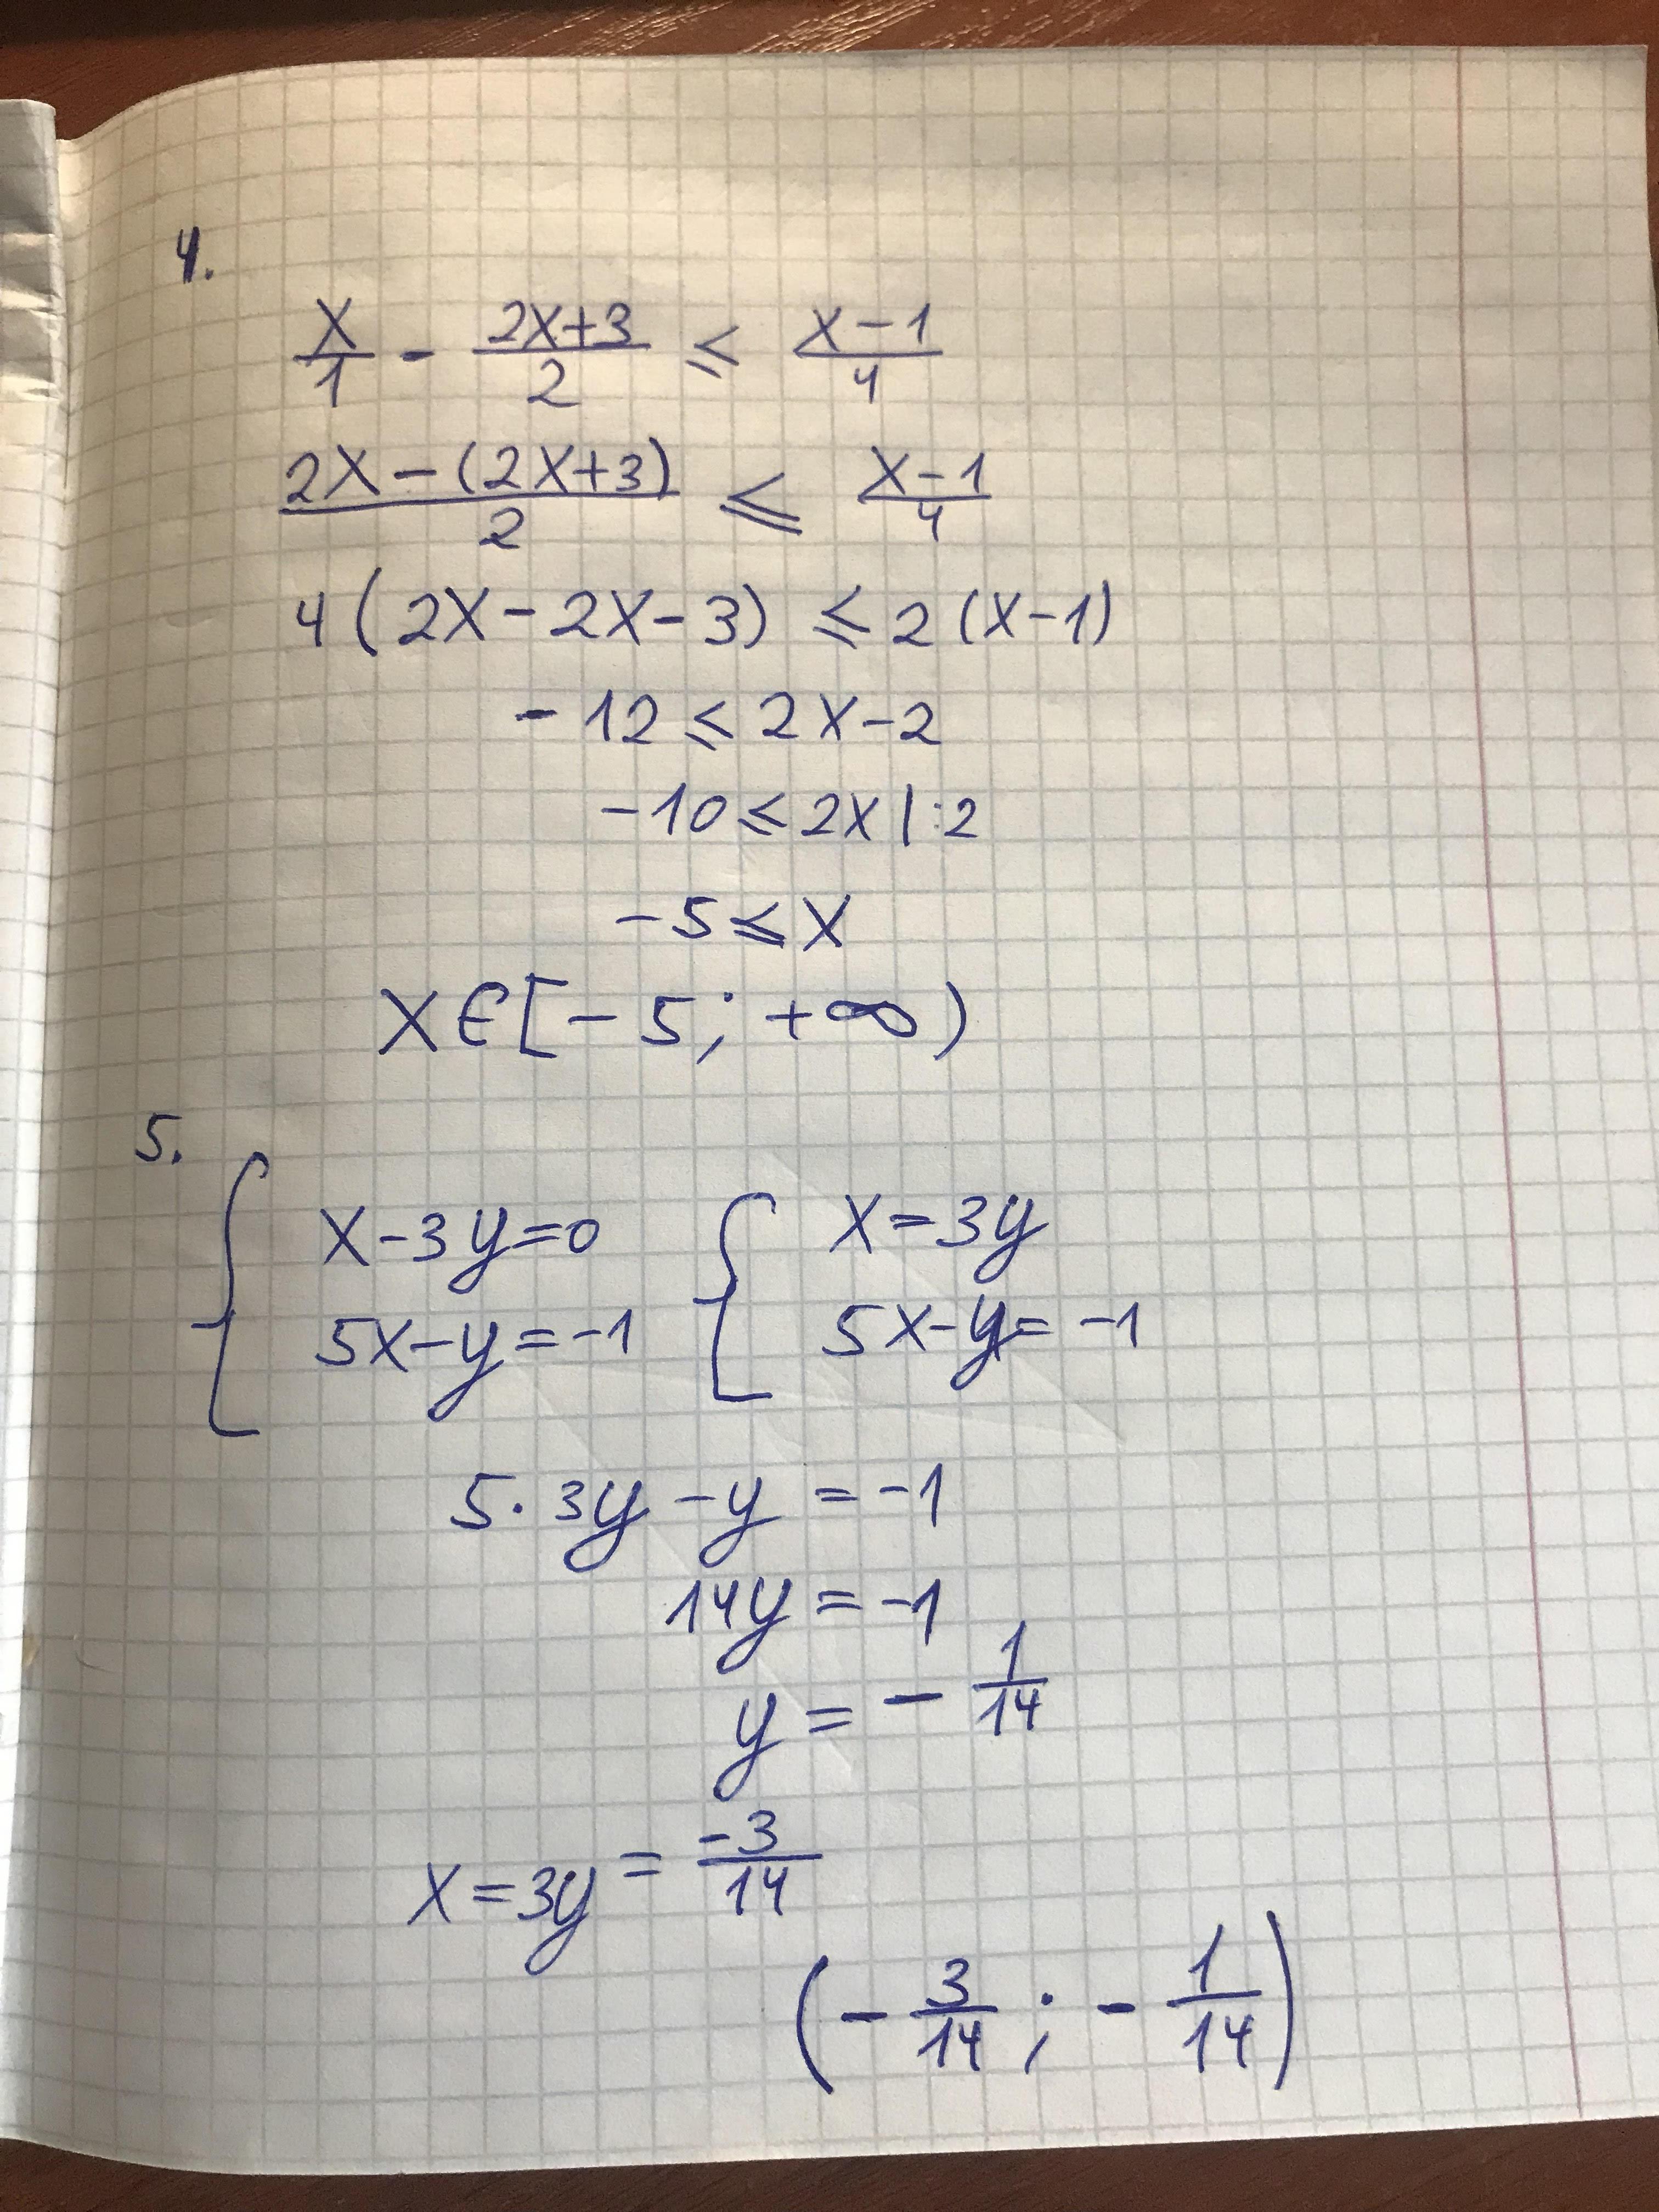 4.
x/1 - (2x+3)/2 ≤ (x-1)/4
(2x-(2x+3))/2 ≤ (x-1)/4
4(2x-2x-3) ≤ 2(x-1)
-12 ≤ 2x-2
-10 ≤ 2x |:2
-5 ≤ x
x∈[-5; +∞)
5.
{ x-3y=0 { x=3y
5x-y=-1 5x-y=-1
5·3y-y=-1
14y=-1
y=-1/14
x=3y=-3/14
(-3/14; -1/14)